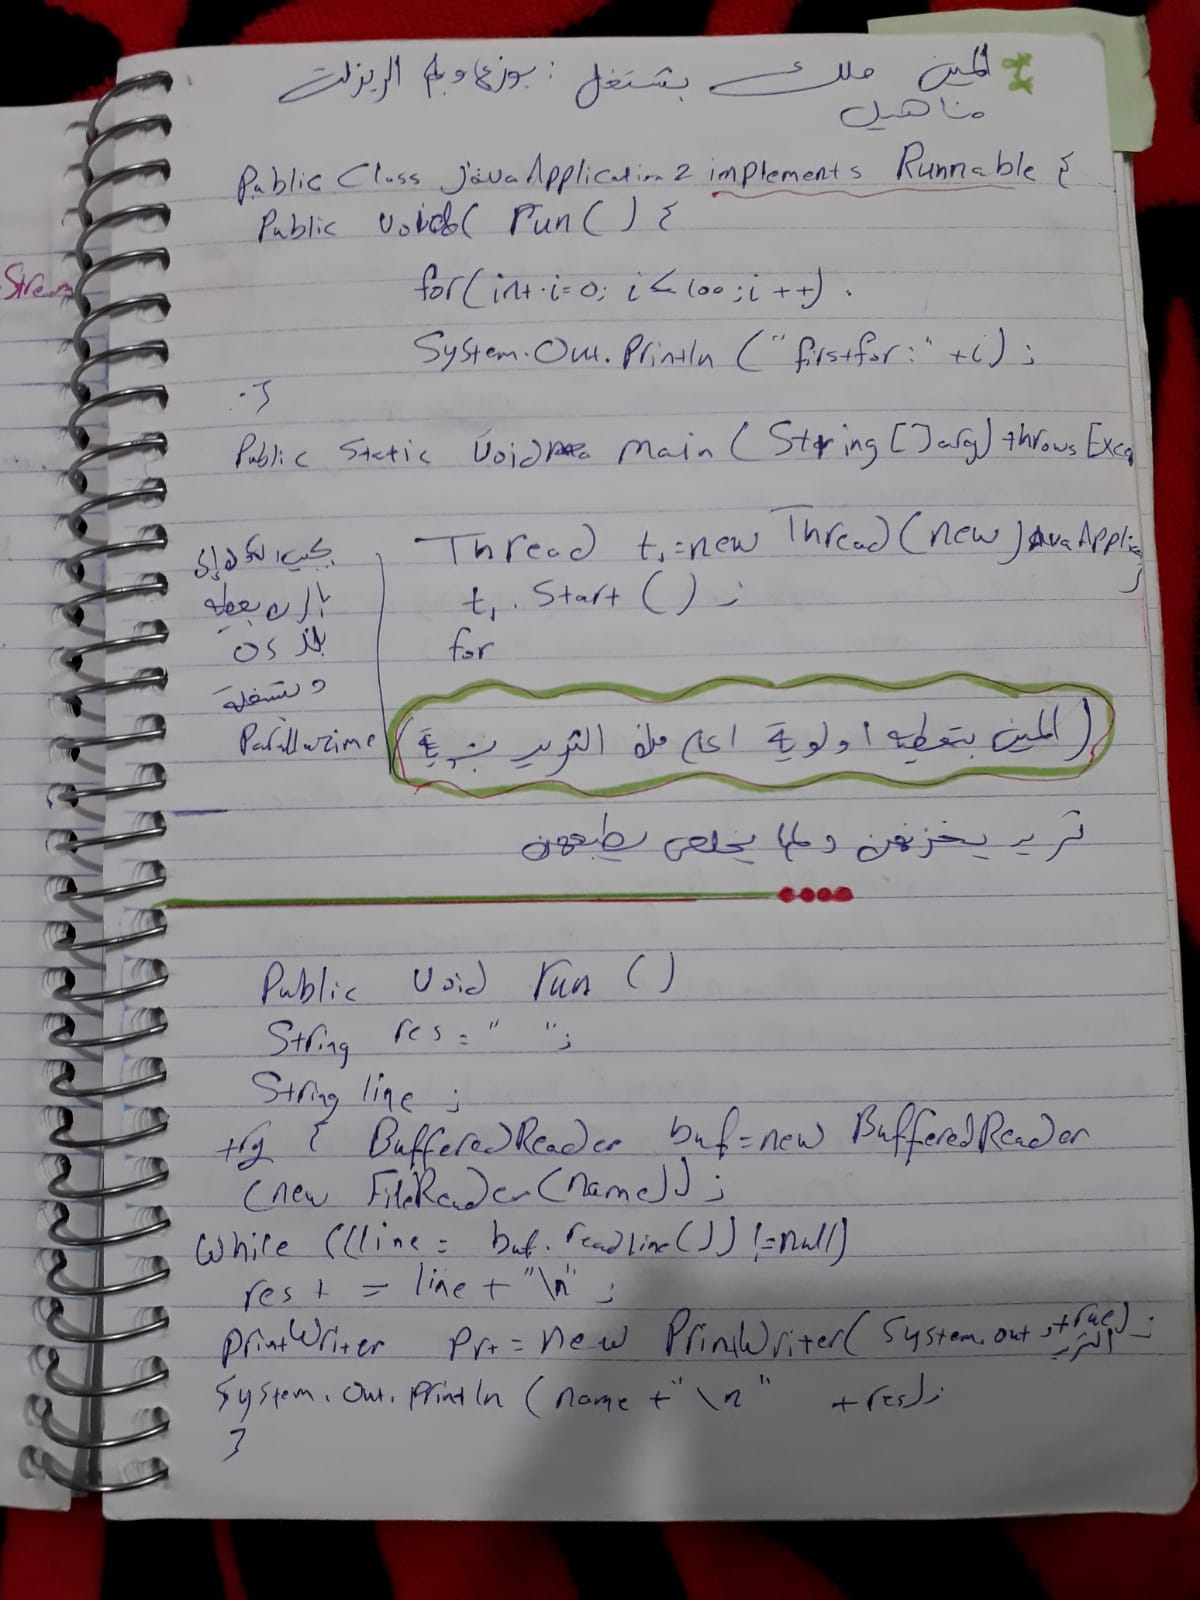 المين ملك بشتغل : بوزع وبلم الريزلت
مناهيل
Public Class javaApplication2 implements Runnable {
Public void run() {
for(int i=0; i<100; i++)
System.out.Println ("firstfor:" +i) ;
}
Public Static void main (String []arg) throws Excep
Thread t1=new Thread(new JavaApplic
;
t1.Start () ;
for
بعطيه
OS
وبشغله
(المين بتعطيه اولوية اعلى من الثريد
ثريد يخزنهن ولما يخلص يطبعهن
Public void run ()
String res = " ";
String line ;
try { BufferedReader buf=new BufferedReader
(new FileReader(name)) ;
While ((line = buf.readline()) !=null)
res + = line + "\n" ;
PrintWriter Prt = new PrintWriter( System.out ,true) ;
الثريد
System.out.println (name +"\n" +res);
}
Stream